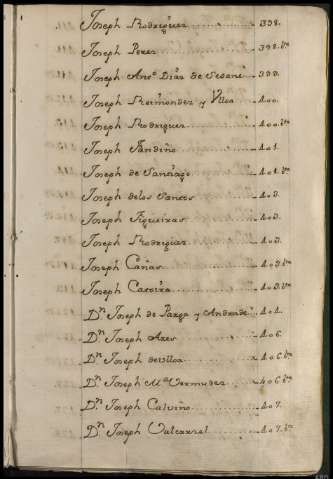 Joseph Rodriguez 398.
Joseph Perez 398.bta
Joseph Anto. Dias de Seoane 399.
Joseph Reimondez y Ulloa 400.
Joseph Rodriguez 400.bta
Joseph Fandiño 401.
Joseph de Santiago 401.bta
Joseph delos Santos 403.
Joseph Figueiras 403.
Joseph Rodriguez 403.
Joseph Cañas 403.bta
Joseph 403.bta
Dn. Joseph de Parga y Andrade 404.
Dn. Joseph 406.
Dn. Joseph de Ulloa 406.bta
Dn. Joseph Ma. Vermudez 406.bta
Dn. Joseph Calviño 407.
Dn. Joseph Valcarzel 407.bta